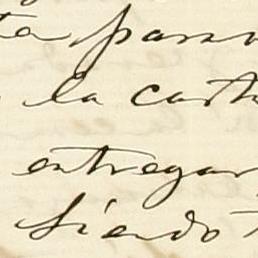 ta para
la cart
entregar
siendo